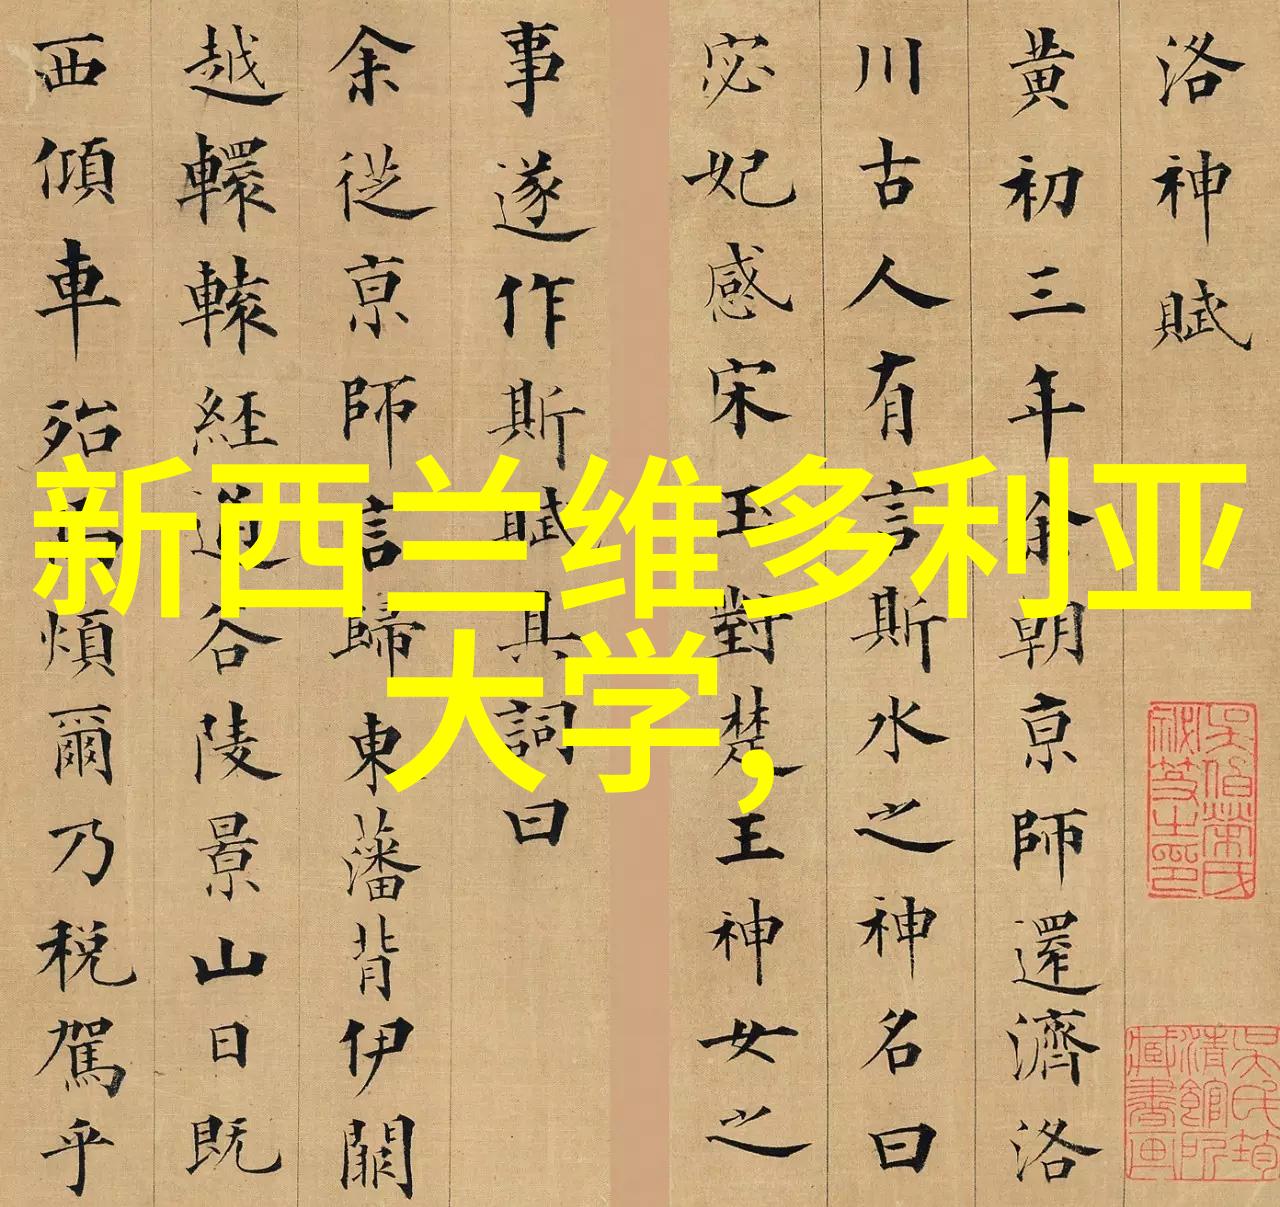 洛神賦
黃初三年余朝京師還濟洛
川古人有言斯水之神名曰
宓妃感宋玉對楚王神女之
事遂作斯賦其詞曰
余從京師言歸東藩背伊闕
越轘轅經通谷陵景山日既
西傾車殆馬煩爾乃稅駕乎
新西兰维多利亚
大学，